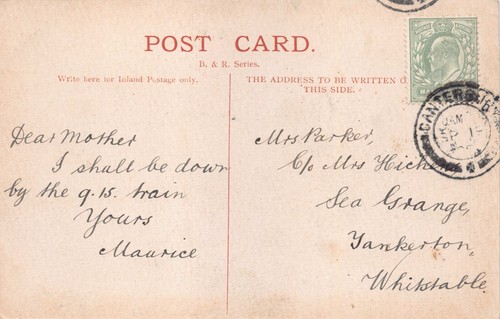 POST CARD.
B. & R. Series.
Write here for Inland Postage only.
THE ADDRESS TO BE WRITTEN O
THIS SIDE.
Dear Mother
I shall be down
by the 9.15. train
Yours
Maurice
Mrs Parker,
C/o Mrs
Sea Grange,
Tankerton,
Whitstable.
CANTERBURY